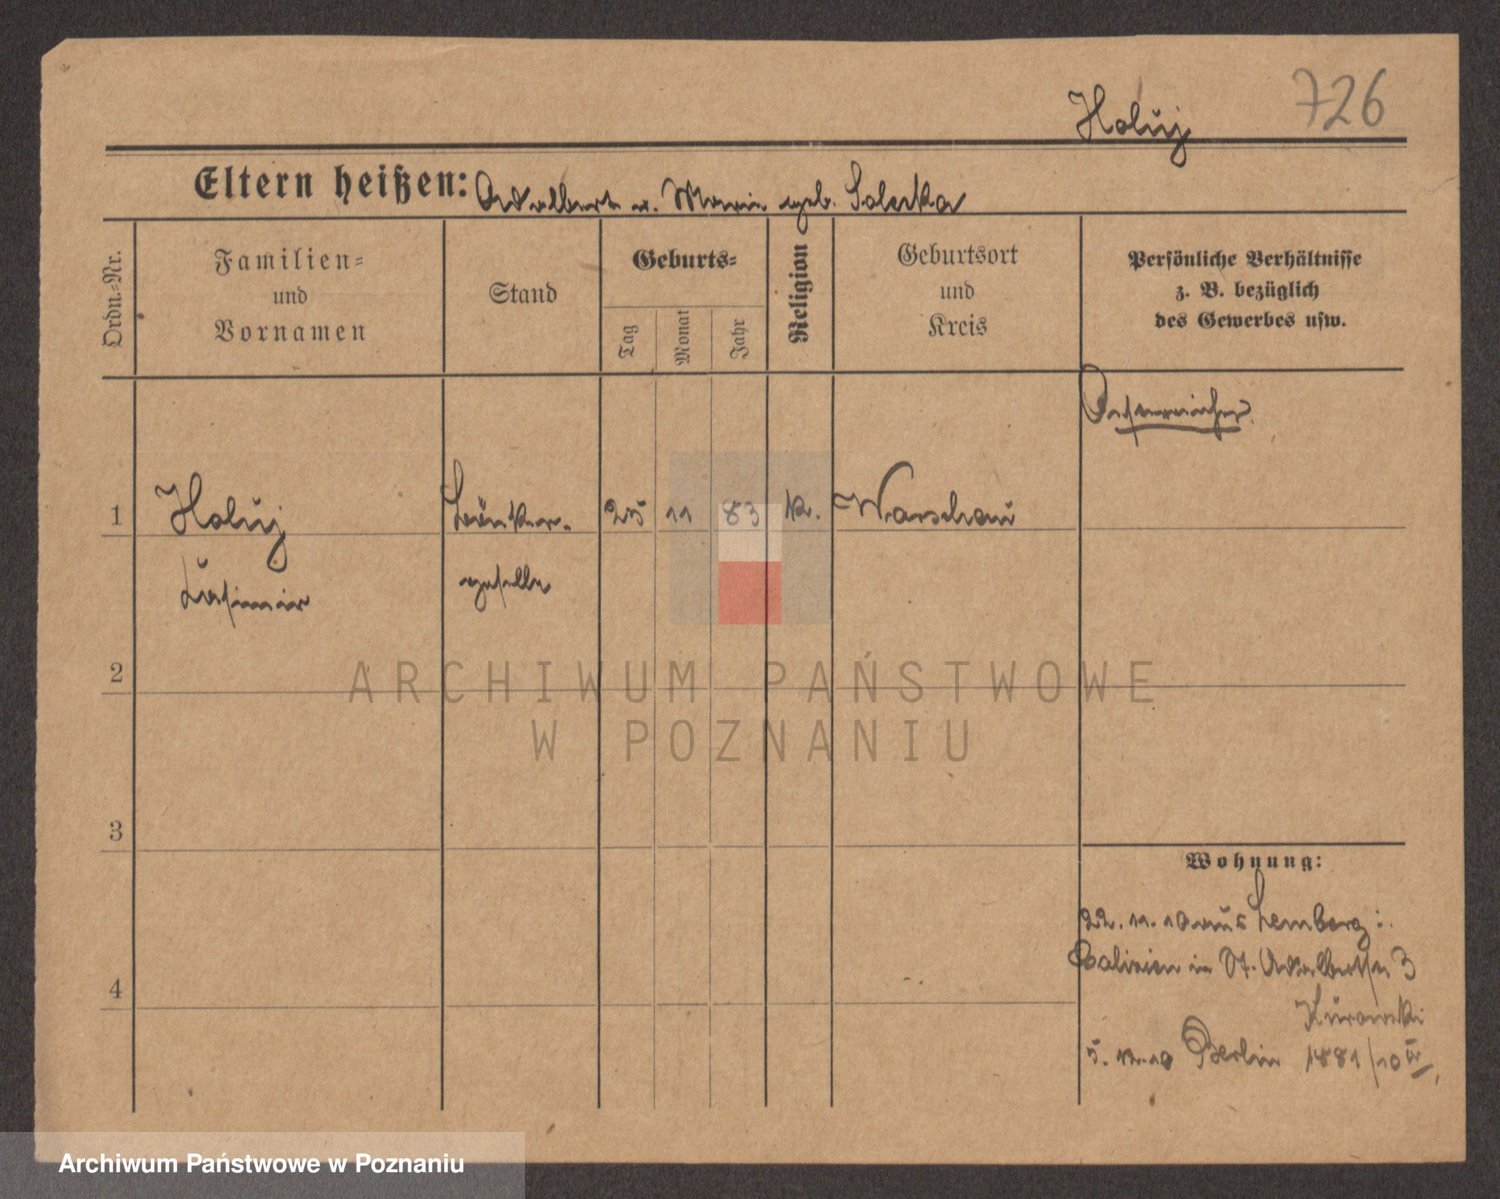 Holuj 726
Eltern heißen: Adalbert u. Maria geb. Solecka
Ordn.-Nr.
Familien-
und
Vornamen
Stand
Geburts-
Tag
Monat
Jahr
Religion
Geburtsort
und
Kreis
Persönliche Verhältnisse
z. B. bezüglich
des Gewerbes usw.
Oesterreicher.
1 Holuj 25 11 83 k. Warschau
Kasimir geselle
2
3
4
Wohnung:
22.11.10 aus Lemberg i.
Galizien in St. Adalbertstr 3
Kurowski
5.12.10 Berlin 1881/10 IV
ARCHIWUM PAŃSTWOWE
W POZNANIU
Archiwum Państwowe w Poznaniu